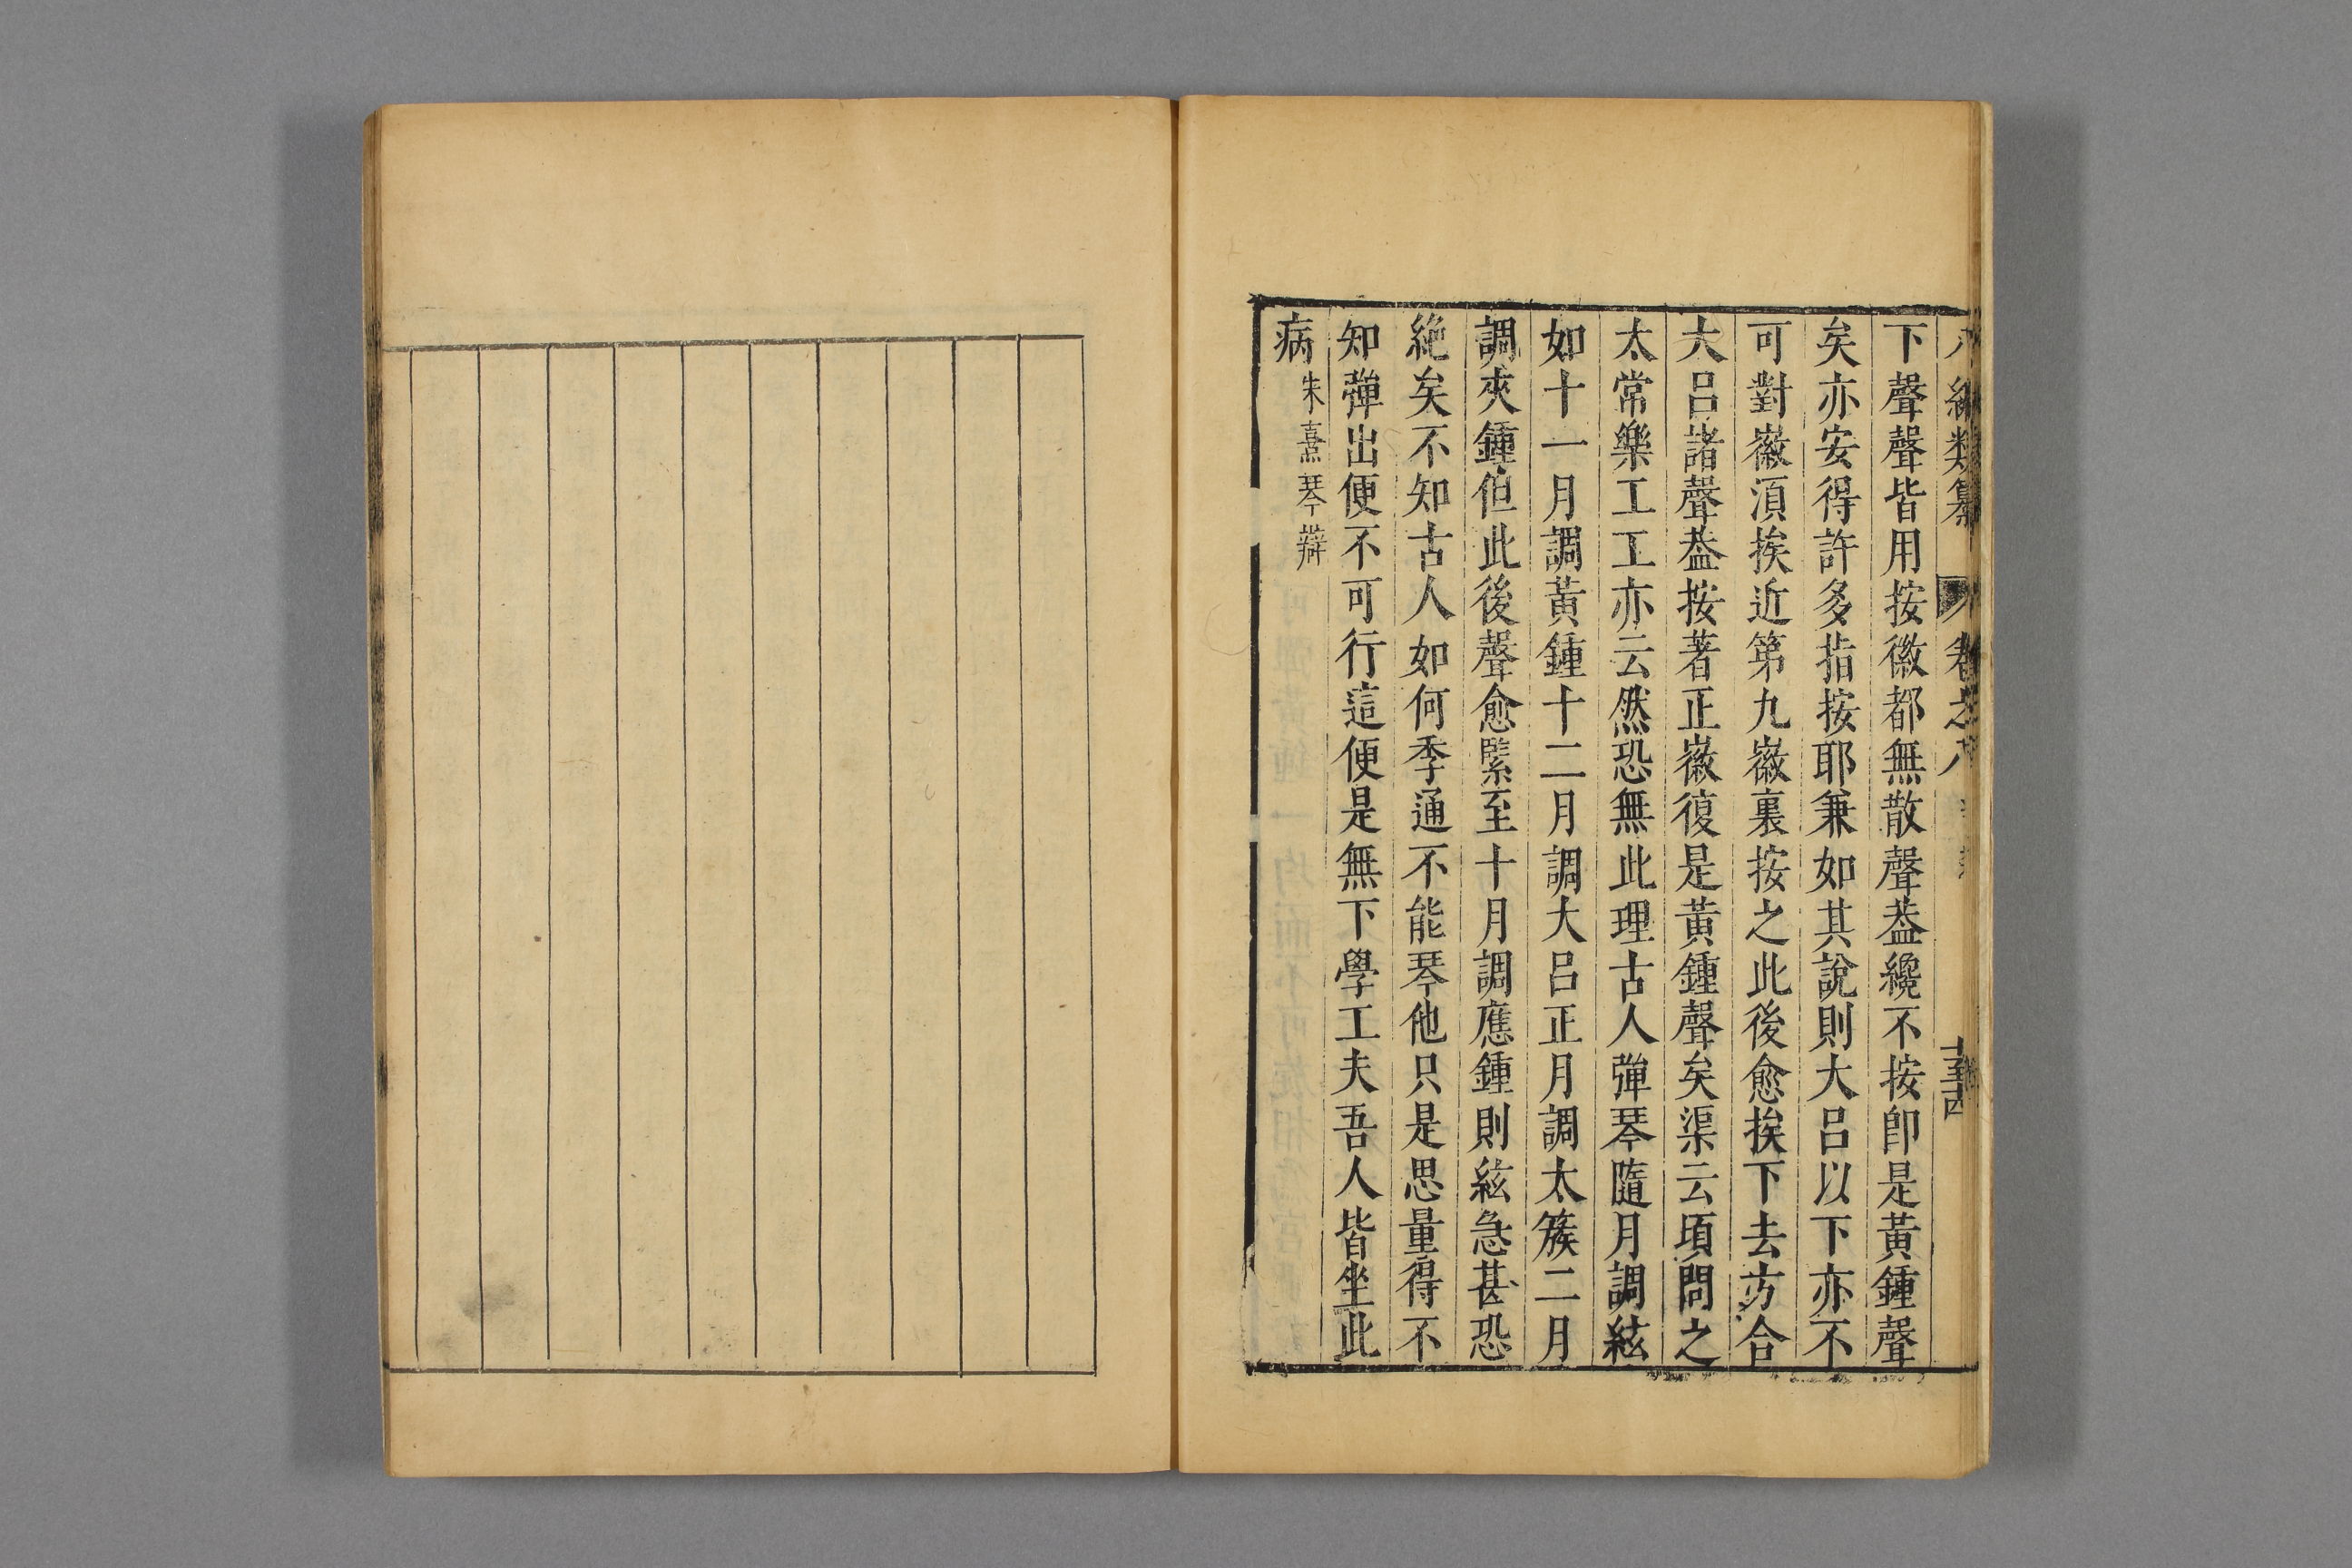 八編類纂 卷之八 五十四
下聲聲皆用按徽都無散聲葢纔不按卽是黃鍾聲
矣亦安得許多指按耶兼如其說則大呂以下亦不
可對徽湏挨近第九徽裏按之此後愈挨下去方合
大呂諸聲葢按著正徽復是黃鍾聲矣渠云頃問之
太常樂工工亦云然恐無此理古人彈琴隨月調絃
如十一月調黃鍾十二月調大呂正月調太簇二月
調夾鍾但此後聲愈緊至十月調應鍾則絃急甚恐
絶矣不知古人如何季通不能琴他只是思量得不
知彈出便不可行這便是無下學工夫吾人皆坐此
病朱熹琴辯